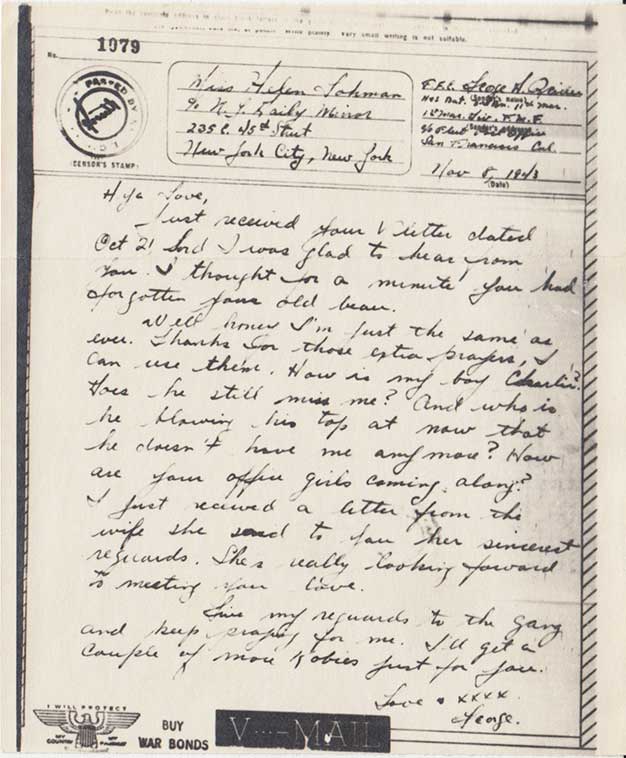 very small writing is not suitable.
No. 1079
PASSED BY
(CENSOR'S STAMP)
Miss Helen Lohman
% N.Y. Daily Mirror
235 E. 45th Street
New York City, New York
P.F.C. George
1st Mar. Div. F.M.F.
San Francisco Cal.
Nov 8, 1943
(Date)
Hiya Love,
Just received your V letter dated
Oct 21 and I was glad to hear from
you. I thought for a minute you had
forgotten your old beau.
Well honey I'm just the same as
ever. Thanks for those extra prayers, I
can use them. How is my boy Charlie?
Does he still miss me? And who is
he blowing his top at now that
he doesn't have me any more? How
are your office girls coming along?
I just received a letter from the
wife she send to you her sincerest
reguards. She's really looking forward
to meeting you love.
Give my reguards to the gang
and keep praying for me. I'll get a
couple of more
just for you.
Love & xxxx.
George.
I WILL PROTECT
MY COUNTRY MY
BUY
WAR BONDS
V···-MAIL